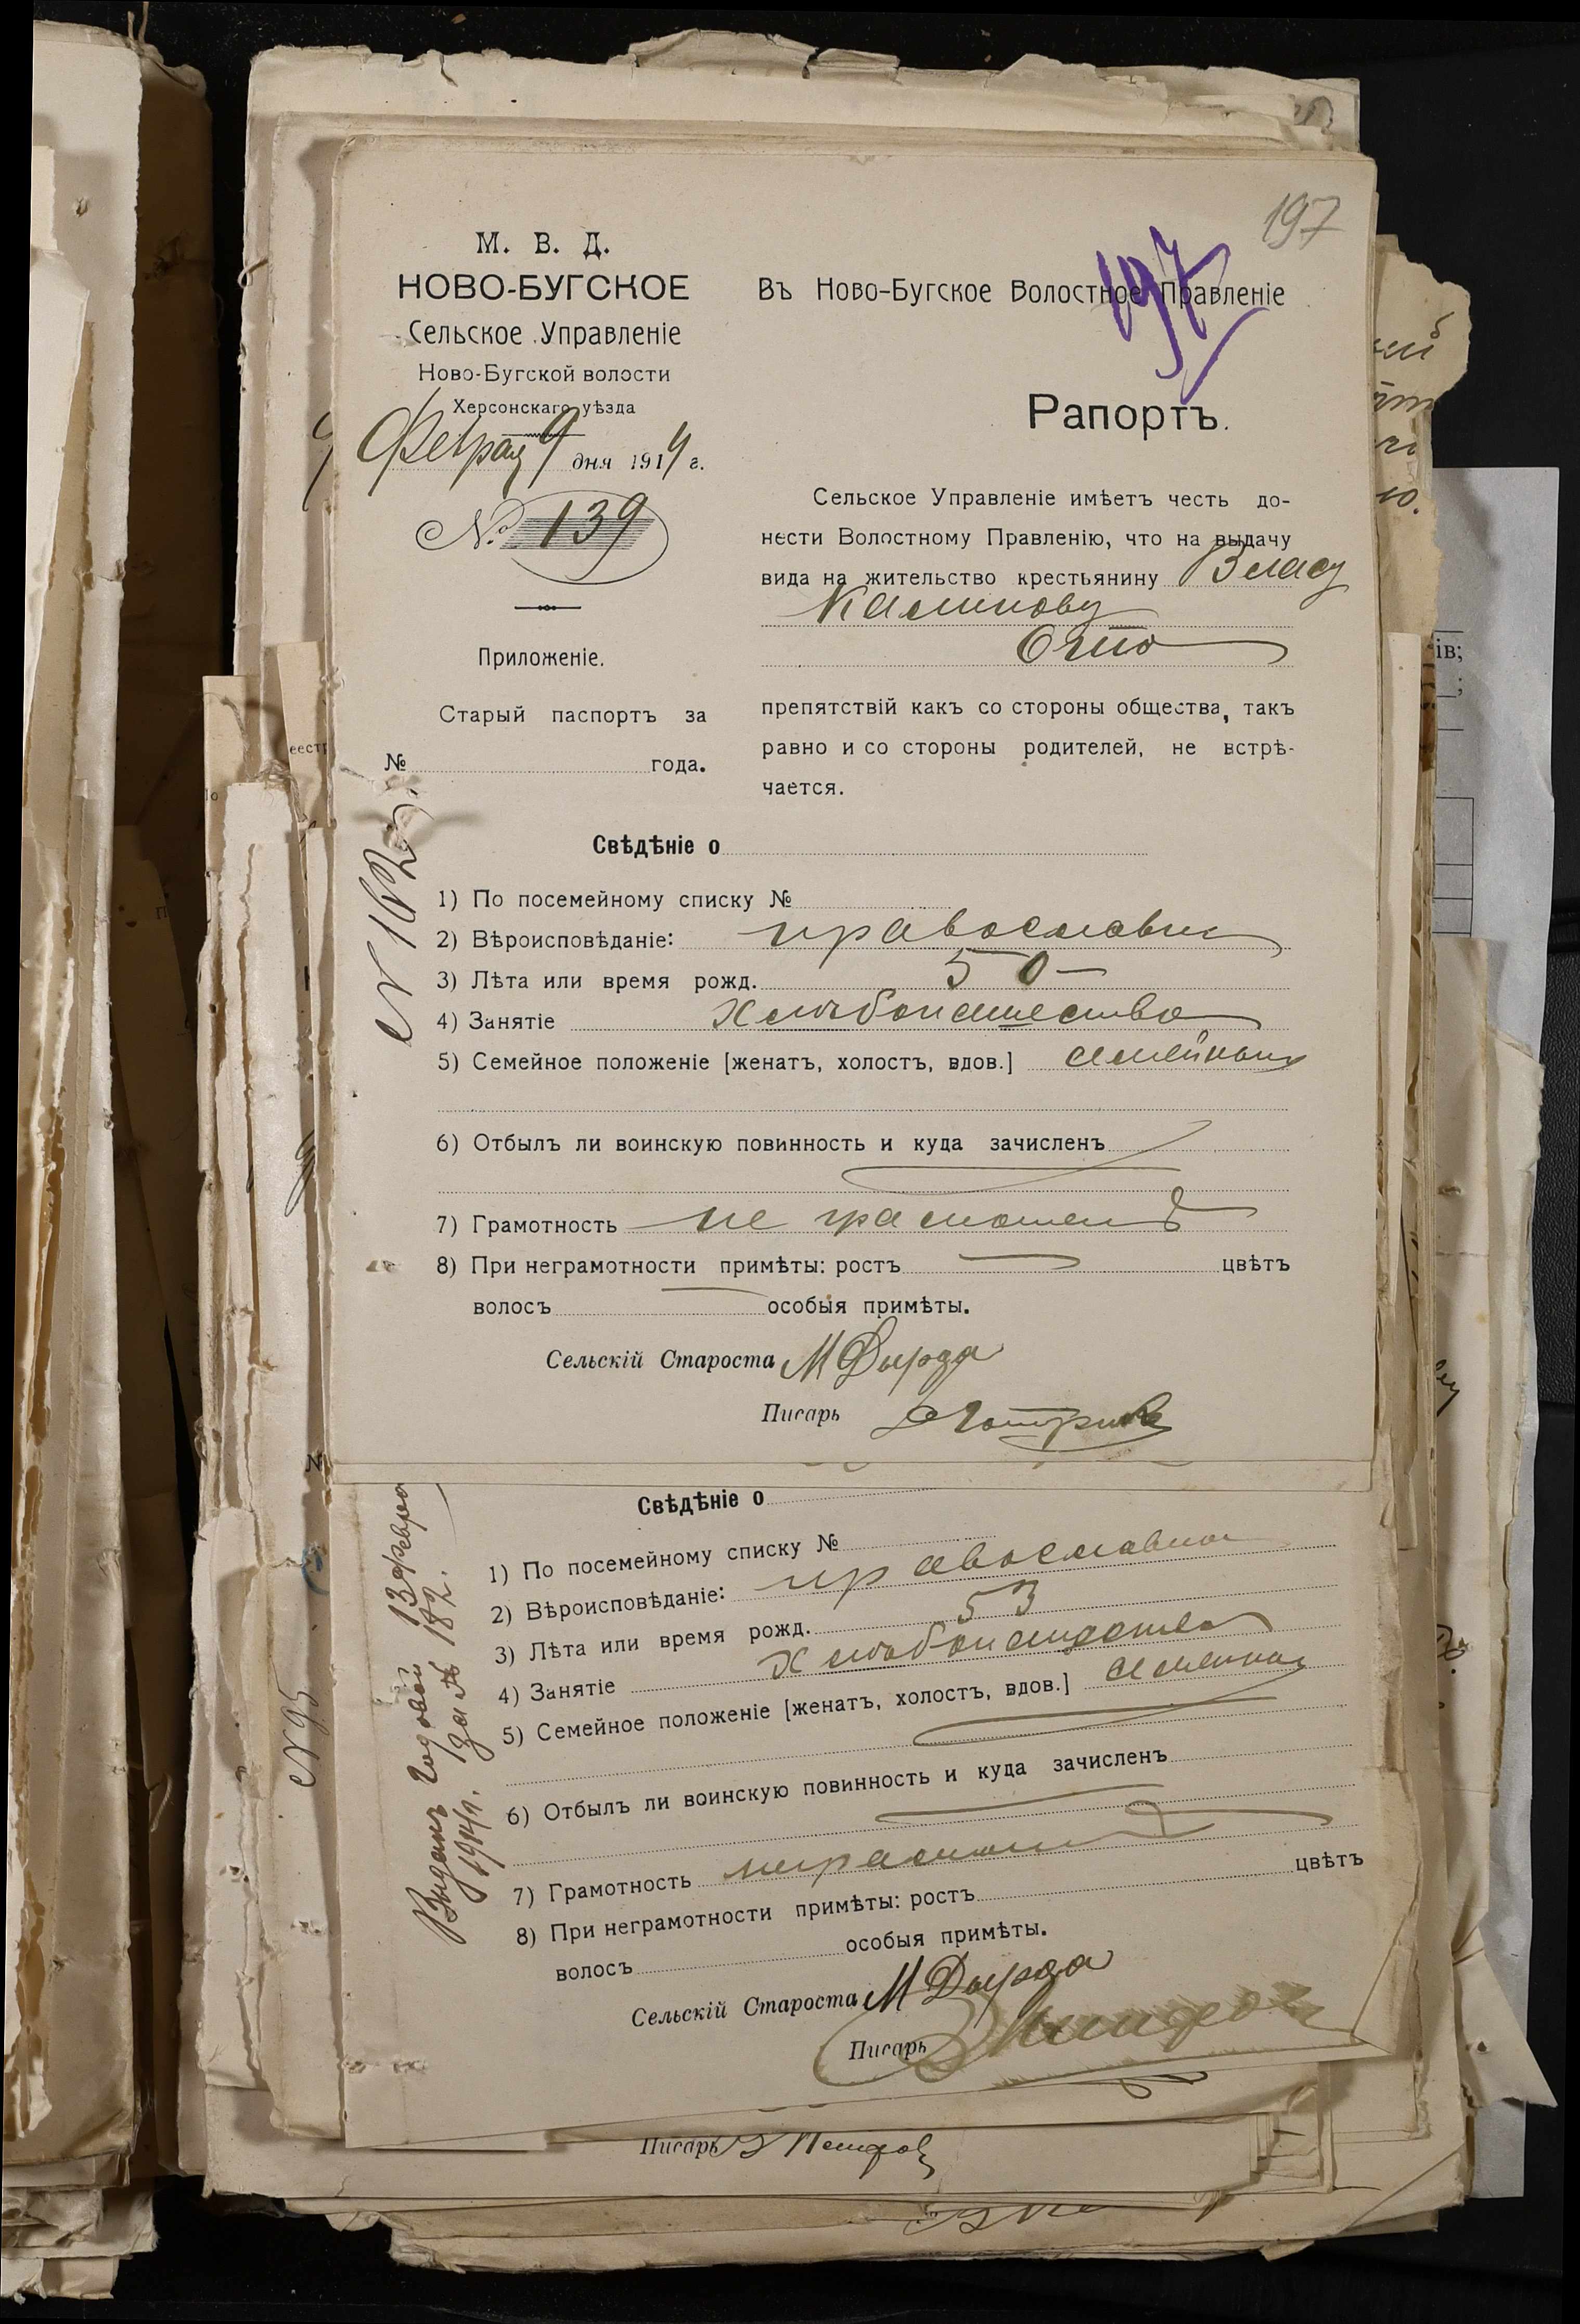 197
197
М. В. Д.
НОВО-БУГСКОЕ
Сельское Управленіе
Ново-Бугской волости
Херсонскаго уѣзда
9 дня 1914 г.
№ 139
Приложеніе.
Старый паспортъ за
№ года.
Въ Ново-Бугское Волостное Правленіе
Рапортъ.
Сельское Управленіе имѣетъ честь до-
нести Волостному Правленію, что на выдачу
вида на жительство крестьянину Власу
Калинову
препятствій какъ со стороны общества, такъ
равно и со стороны родителей, не встрѣ-
чается.
Свѣдѣніе о
1) По посемейному списку №
2) Вѣроисповѣданіе: православн
3) Лѣта или время рожд. 50
4) Занятіе хлѣбопашество
5) Семейное положеніе [женатъ, холостъ, вдов.] семейный
6) Отбылъ ли воинскую повинность и куда зачисленъ
7) Грамотность не грамотенъ
8) При неграмотности примѣты: ростъ цвѣтъ
волосъ особыя примѣты.
Сельскій Староста М Дырда
Писарь
Свѣдѣніе о
1) По посемейному списку №
2) Вѣроисповѣданіе: православн
3) Лѣта или время рожд. 53
4) Занятіе хлѣбопашество
5) Семейное положеніе [женатъ, холостъ, вдов.] семейный
6) Отбылъ ли воинскую повинность и куда зачисленъ
7) Грамотность
8) При неграмотности примѣты: ростъ цвѣтъ
волосъ особыя примѣты.
Сельскій Староста М Дырда
Писарь
Выданъ годовой 13 февра
1914 г. за № 182.
№ 95
Писарь